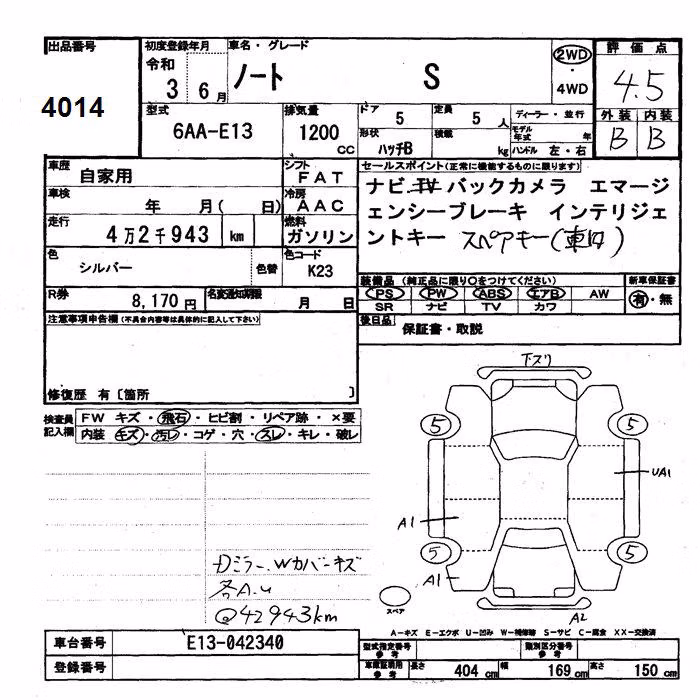 出品番号
4014
初度登録年月
令和
3 6月
車名・グレード
ノート S
2WD
・
4WD
評価点
4.5
外装 内装
B B
型式
6AA-E13
排気量
1200
CC
ドア
5
定員
5 人
ディーラー・並行
形状
ハッチB
積載
kg
モデル年式 年
ハンドル 左・右
車歴
自家用
シフト
FAT
車検
年 月( 日)
冷房
AAC
走行
4万2千943 km
燃料
ガソリン
色
シルバー
色替
色コード
K23
R券
8,170円
名変通知期限
月 日
セールスポイント(正常に機能するものに限ります)
ナビ.TV バックカメラ エマージ
ェンシーブレーキ インテリジェ
ントキー スペアキー(車内)
装備品 (純正品に限り○をつけてください)
PS PW ABS エアB AW
SR ナビ TV カワ
新車保証書
有・無
後日品
保証書・取説
注意事項申告欄(不具合内容等は具体的に記入して下さい)
修復歴 有〔箇所 〕
検査員
記入欄
FW キズ・飛石・ヒビ割・リペア跡・×要
内装 キズ・汚レ・コゲ・穴・スレ・キレ・破レ
下スリ
5 5
UA1
A1
5 5
A1
A2
スペア
Dミラー、Wカバーキズ
各A.u
@42943km
A-キズ E-エクボ U-凹み W-補修跡 S-サビ C-腐食 XX-交換済
車台番号
E13-042340
登録番号
型式指定番号
参考
類別区分番号
参考
車庫証明用
参考
長さ 404 cm 幅 169 cm 高さ 150 cm